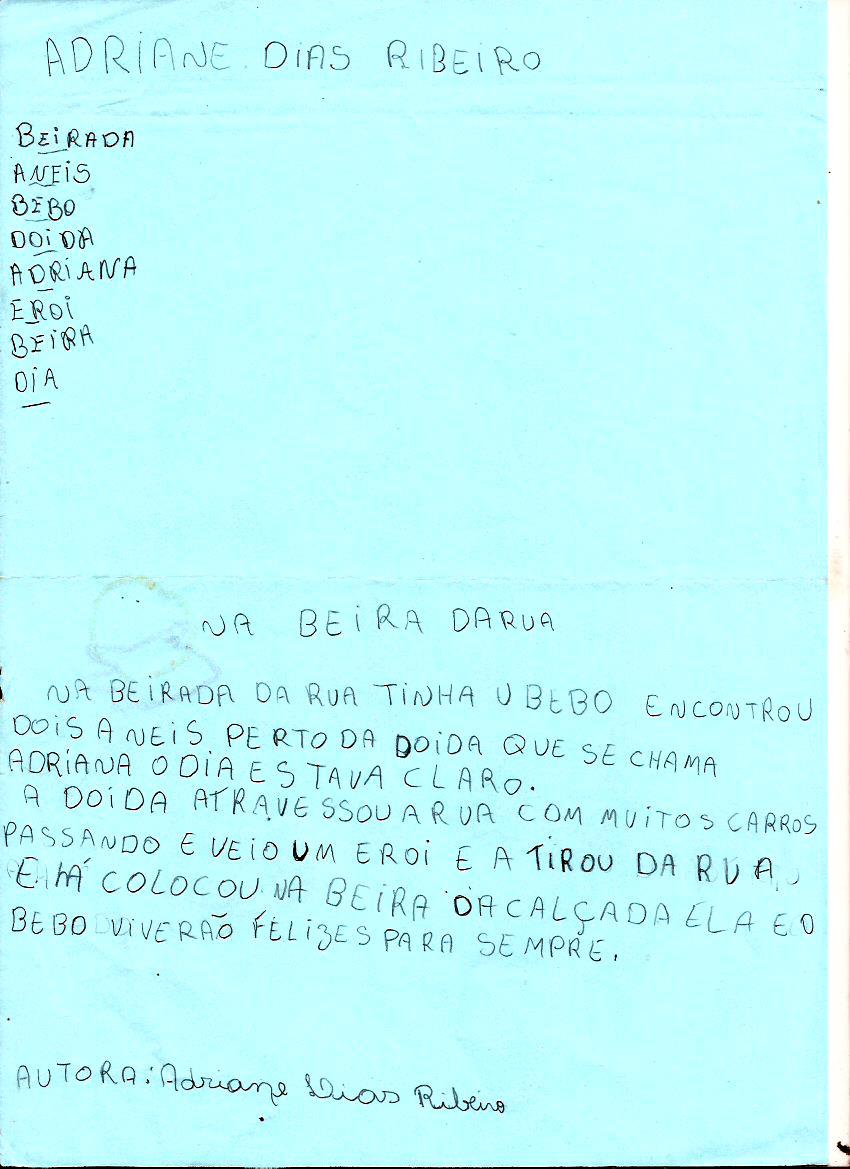 ADRIANE DIAS RIBEIRO
BEIRADA
ANEIS
BEBO
DOIDA
ADRIANA
EROI
BEIRA
DIA
NA BEIRA DARUA
NA BEIRADA DA RUA TINHA U BEBO ENCONTROU
DOIS A NEIS PERTO DA DOIDA QUE SE CHAMA
ADRIANA O DIA ESTAVA CLARO.
A DOIDA ATRAVESSOU A RUA COM MUITOS CARROS
PASSANDO E VEIO UM EROI E A TIROU DA RUA
E COLOCOU NA BEIRA DA CALÇADA ELA E O
BEBO VIVERÃO FELIZES PARA SEMPRE.
AUTORA: Adriane Dias Ribeiro